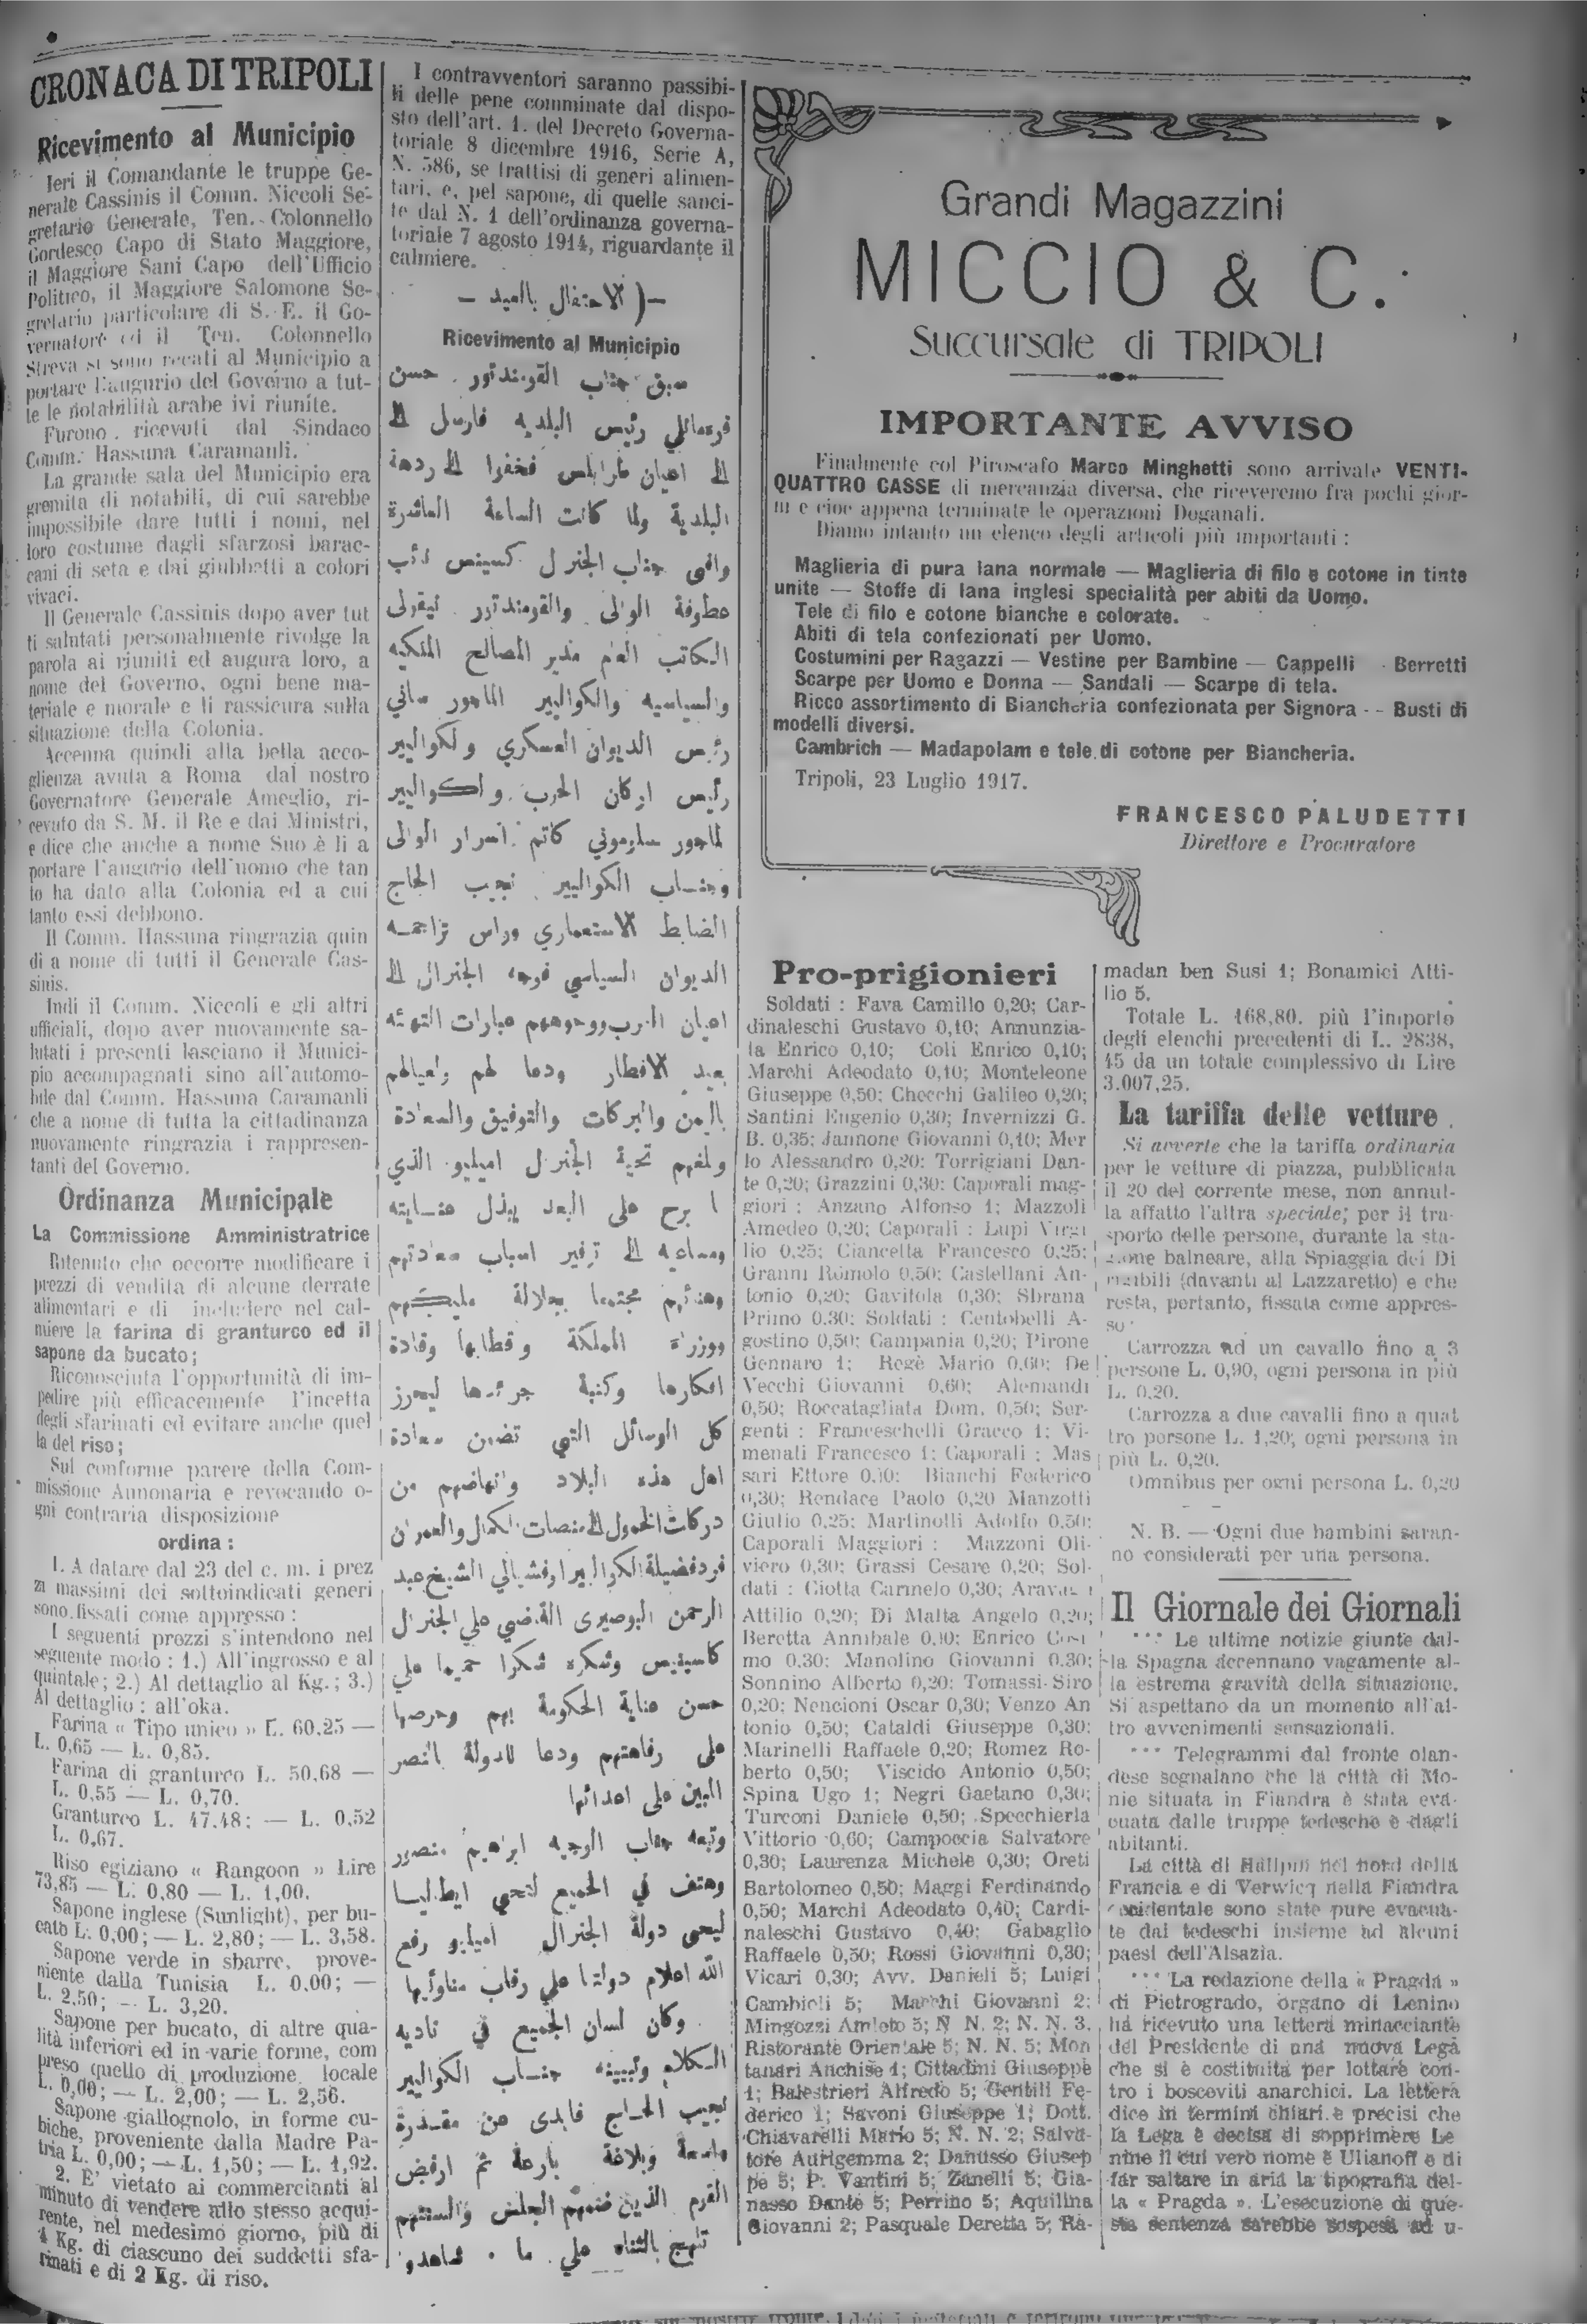 CRONACA DI TRIPOLI
Ricevimento al Municipio
Ieri il Comandante le truppe Ge-
nerale Cassinis il Comm. Niccoli Se-
gretario Generale, Ten. Colonnello
Gordesco Capo di Stato Maggiore,
il Maggiore Sani Capo dell'Ufficio
Politico, il Maggiore Salomone Se-
gretario particolare di S. E. il Go-
vernatore ed il Ten. Colonnello
Streva si sono recati al Municipio a
portare l'augurio del Governo a tut-
te le notabilità arabe ivi riunite.
Furono ricevuti dal Sindaco
Comm. Hassuna Caramanli.
La grande sala del Municipio era
gremita di notabili, di cui sarebbe
impossibile dare tutti i nomi, nel
loro costume dagli sfarzosi barac-
cani di seta e dai giubbetti a colori
vivaci.
Il Generale Cassinis dopo aver tut
ti salutati personalmente rivolge la
parola ai riuniti ed augura loro, a
nome del Governo, ogni bene ma-
teriale e morale e li rassicura sulla
situazione della Colonia.
Accenna quindi alla bella acco-
glienza avuta a Roma dal nostro
Governatore Generale Ameglio, ri-
cevuto da S. M. il Re e dai Ministri,
e dice che anche a nome Suo è li a
portare l'augurio dell'uomo che tan
to ha dato alla Colonia ed a cui
tanto essi debbono.
Il Comm. Hassuna ringrazia quin
di a nome di tutti il Generale Cas-
sinis.
Indi il Comm. Niccoli e gli altri
ufficiali, dopo aver nuovamente sa-
lutati i presenti lasciano il Munici-
pio accompagnati sino all'automo-
bile dal Comm. Hassuna Caramanli
che a nome di tutta la cittadinanza
nuovamente ringrazia i rappresen-
tanti del Governo.
Ordinanza Municipale
La Commissione Amministratrice
Ritenuto che occorre modificare i
prezzi di vendita di alcune derrate
alimentari e di includere nel cal-
miere la farina di granturco ed il
sapone da bucato;
Riconosciuta l'opportunità di im-
pedire più efficacemente l'incetta
degli sfarinati ed evitare anche quel
la del riso;
Sul conforme parere della Com-
missione Annonaria e revocando o-
gni contraria disposizione
ordina :
1. A datare dal 23 del c. m. i prez
zi massimi dei sottoindicati generi
sono fissati come appresso :
I seguenti prezzi s'intendono nel
seguente modo : 1.) All'ingrosso e al
quintale; 2.) Al dettaglio al Kg.; 3.)
Al dettaglio : all'oka.
Farina « Tipo unico » L. 60,25 —
L. 0,65 — L. 0,85.
Farina di granturco L. 50,68 —
L. 0,55 — L. 0,70.
Granturco L. 47.48; — L. 0,52
L. 0,67.
Riso egiziano « Rangoon » Lire
73,85 — L. 0,80 — L. 1,00.
Sapone inglese (Sunlight), per bu-
cato L. 0,00; — L. 2,80; — L. 3,58.
Sapone verde in sbarre, prove-
niente dalla Tunisia L. 0,00; —
L. 2,50; — L. 3,20.
Sapone per bucato, di altre qua-
lità inferiori ed in varie forme, com
preso quello di produzione locale
L. 0,00; — L. 2,00; — L. 2,56.
Sapone giallognolo, in forme cu-
biche, proveniente dalla Madre Pa-
tria L. 0,00; — L. 1,50; — L. 1,92.
2. E' vietato ai commercianti al
minuto di vendere allo stesso acqui-
rente, nel medesimo giorno, più di
4 Kg. di ciascuno dei suddetti sfa-
rinati e di 2 Kg. di riso.
I contravventori saranno passibi-
li delle pene comminate dal dispo-
sto dell'art. 1. del Decreto Governa-
toriale 8 dicembre 1916, Serie A,
N. 586, se trattisi di generi alimen-
tari. e, pel sapone, di quelle sanci-
te dal N. 1 dell'ordinanza governa-
toriale 7 agosto 1914, riguardante il
calmiere.
–( الاحتفال بالعيد –
Ricevimento al Municipio
سبق جناب القومندتور حسن
قرمانلي رئيس البلديه فارسل الى
الى اعيان طرابلس فحفروا الى ردهة
البلدية ولما كانت الساعة العاشرة
وافى جناب الجنرل كسينس نائب
عطوفة الوالى والقومندتور نيقولى
الكاتب العام مدير المصالح الملكيه
والسياسيه والكوالير الماجور ساني
رئيس الديوان العسكري ولكوالير
رئيس اركان الحرب والكوالير
لماجور سلرموني كاتم اسرار الوالى
وجناب الكوالير نجيب الحاج
الضابط الاستعماري وراس تراجمه
الديوان السياسي فوجه الجنرال الى
اعيان العرب ووجوههم عبارات التهنئه
بعيد الافطار ودعا لهم ولعيالهم
باليمن والبركات والتوفيق والسعادة
وبلغهم تحية الجنرل اميليو الذي
ما برح على البعد يبذل عنايته
ومساعيه الى توفير اسباب سعادتهم
وهنائهم مجتمعا بجلالة مليكهم
ووزراء المملكة وقطابها وقادة
افكارها وكتبة جرئدها ليحرز
كل الوسائل التي تضمن سعادة
اهل هذه البلاد وانهاضهم من
دركات الخمول الى منصات الكمال والعمران
فرد فضيلة الكوالير اوفشيالي الشيخ عبد
الرحمن البوصيرى القاضي على الجنرال
كاسينيس وشكره شكرا حميما على
حسن عناية الحكومة بهم وحرصها
على رفاهتهم ودعا للدولة بالنصر
المبين على اعدائها
وتبعه جناب الوجيه ابراهيم منصور
وهتف في الجميع لتحي ايطاليا
ليحى دولة الجنرال اميليو رفع
الله اعلام دولتنا علي رقاب مناوئيها
وكان لسان الجميع في تاديه
الكلام وتبيينه جناب الكوالير
نجيب الحاج فابدى عن مقدرة
واسعة وبلاغة بارعة ثم ارفض
القوم الذين ضمهم المجلس والسنتهم
تلهج بالثناء على ما شاهدو
Grandi Magazzini
MICCIO & C.
Succursale di TRIPOLI
IMPORTANTE AVVISO
Finalmente col Piroscafo Marco Minghetti sono arrivate VENTI-
QUATTRO CASSE di mercanzia diversa, che riceveremo fra pochi gior-
ni e cioe appena terminate le operazioni Doganali.
Diamo intanto un elenco degli articoli più importanti :
Maglieria di pura lana normale — Maglieria di filo e cotone in tinte
unite — Stoffe di lana inglesi specialità per abiti da Uomo.
Tele di filo e cotone bianche e colorate.
Abiti di tela confezionati per Uomo.
Costumini per Ragazzi — Vestine per Bambine — Cappelli - Berretti
Scarpe per Uomo e Donna — Sandali — Scarpe di tela.
Ricco assortimento di Biancheria confezionata per Signora -- Busti di
modelli diversi.
Cambrich — Madapolam e tele di cotone per Biancheria.
Tripoli, 23 Luglio 1917.
FRANCESCO PALUDETTI
Direttore e Procuratore
Pro-prigionieri
Soldati : Fava Camillo 0,20; Car-
dinaleschi Gustavo 0,10; Annunzia-
ta Enrico 0,10; Coli Enrico 0,10;
Marchi Adeodato 0,10; Monteleone
Giuseppe 0,50; Checchi Galileo 0,20;
Santini Eugenio 0,30; Invernizzi G.
B. 0,35; Jannone Giovanni 0,10; Mer
lo Alessandro 0,20; Torrigiani Dan-
te 0,20; Grazzini 0,30; Caporali mag-
giori : Anzano Alfonso 1; Mazzoli
Amedeo 0,20; Caporali : Lupi Virgi
lio 0,25; Ciancetta Francesco 0,25;
Granni Romolo 0,50; Castellani An-
tonio 0,20; Gavitola 0,30; Sbrana
Primo 0.30; Soldati : Centobelli A-
gostino 0,50; Campania 0,20; Pirone
Gennaro 1; Regè Mario 0,60; De
Vecchi Giovanni 0,60; Alemandi
0,50; Roccatagliata Dom. 0,50; Ser-
genti : Franceschelli Gracco 1; Vi-
menali Francesco 1; Caporali : Mas
sari Ettore 0.30; Bianchi Federico
0,30; Rendace Paolo 0,20 Manzotti
Giulio 0,25; Martinolli Adolfo 0,50;
Caporali Maggiori : Mazzoni Oli-
viero 0,30; Grassi Cesare 0,20; Sol-
dati : Ciotta Carmelo 0,30;
Attilio 0,20; Di Malta Angelo 0,20;
Beretta Annibale 0.30; Enrico Cosi
mo 0.30; Manolino Giovanni 0.30;
Sonnino Alberto 0,20; Tomassi Siro
0,20; Nencioni Oscar 0,30; Venzo An
tonio 0,50; Cataldi Giuseppe 0,30;
Marinelli Raffaele 0,20; Romez Ro-
berto 0,50; Viscido Antonio 0,50;
Spina Ugo 1; Negri Gaetano 0,30;
Turconi Daniele 0,50; Specchierla
Vittorio 0,60; Campoccia Salvatore
0,30; Laurenza Michele 0,30; Oreti
Bartolomeo 0,50; Maggi Ferdinando
0,50; Marchi Adeodato 0,40; Cardi-
naleschi Gustavo 0,40; Gabaglio
Raffaele 0,50; Rossi Giovanni 0,30;
Vicari 0,30; Avv. Danieli 5; Luigi
Cambioli 5; Marchi Giovanni 2;
Mingozzi Amleto 5; N. N. 2; N. N. 3.
Ristorante Orientale 5; N. N. 5; Mon
tanari Anchise 1; Cittadini Giuseppe
1; Balestrieri Alfredo 5; Gentili Fe-
derico 1; Savoni Giuseppe 1; Dott.
Chiavarelli Mario 5; N. N. 2; Salva-
tore Aurigemma 2; Danusso Giusep
pe 5; P. Vantini 5; Zanelli 5; Gia-
nasso Dante 5; Perrino 5; Aquilina
Giovanni 2; Pasquale Deretta 5; Ra-
madan ben Susi 1; Bonamici Atti-
lio 5.
Totale L. 168,80. più l'importo
degli elenchi precedenti di L. 2838,
45 da un totale complessivo di Lire
3.007,25.
La tariffa delle vetture
Si avverte che la tariffa ordinaria
per le vetture di piazza, pubblicata
il 20 del corrente mese, non annul-
la affatto l'altra speciale; per il tra-
sporto delle persone, durante la sta-
zione balneare, alla Spiaggia dei Di
rizibili (davanti al Lazzaretto) e che
resta, pertanto, fissata come appres-
so :
Carrozza ad un cavallo fino a 3
persone L. 0,90, ogni persona in più
L. 0.20.
Carrozza a due cavalli fino a quat
tro persone L. 1,20; ogni persona in
più L. 0,20.
Omnibus per ogni persona L. 0,20
N. B. — Ogni due bambini saran-
no considerati per una persona.
Il Giornale dei Giornali
*** Le ultime notizie giunte dal-
la Spagna accennano vagamente al-
la estrema gravità della situazione.
Si aspettano da un momento all'al-
tro avvenimenti sensazionali.
*** Telegrammi dal fronte olan-
dese segnalano che la città di Mo-
nie situata in Fiandra è stata eva-
cuata dalle truppe tedesche è dagli
abitanti.
La città di nel nord della
Francia e di Verwicq nella Fiandra
occidentale sono state pure evacua-
te dai tedeschi insieme ad alcuni
paesi dell'Alsazia.
*** La redazione della « Pragda »
di Pietrogrado, organo di Lenino
ha ricevuto una lettera minacciante
del Presidente di una nuova Lega
che si è costituita per lottare con-
tro i bosceviti anarchici. La lettera
dice in termini chiari e precisi che
la Lega è decisa di sopprimere Le
nine il cui vero nome è Ulianoff e di
far saltare in aria la tipografia del-
la « Pragda ». L'esecuzione di que-
sta sentenza sarebbe sospesa ad u-